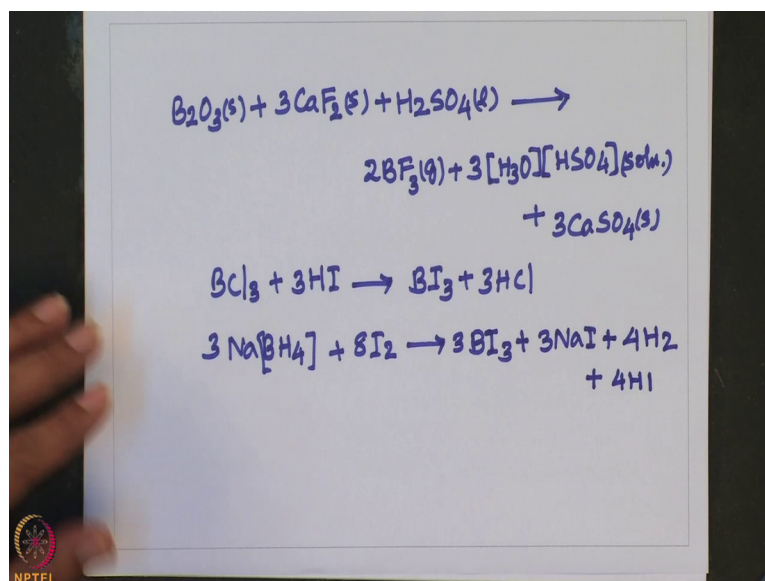 B2O3(s) + 3CaF2(s) + H2SO4(l) ⟶
2BF3(g) + 3[H3O][HSO4](soln.)
+ 3CaSO4(s)
BCl3 + 3HI ⟶ BI3 + 3HCl
3Na[BH4] + 8I2 ⟶ 3BI3 + 3NaI + 4H2
+ 4HI
NPTEL